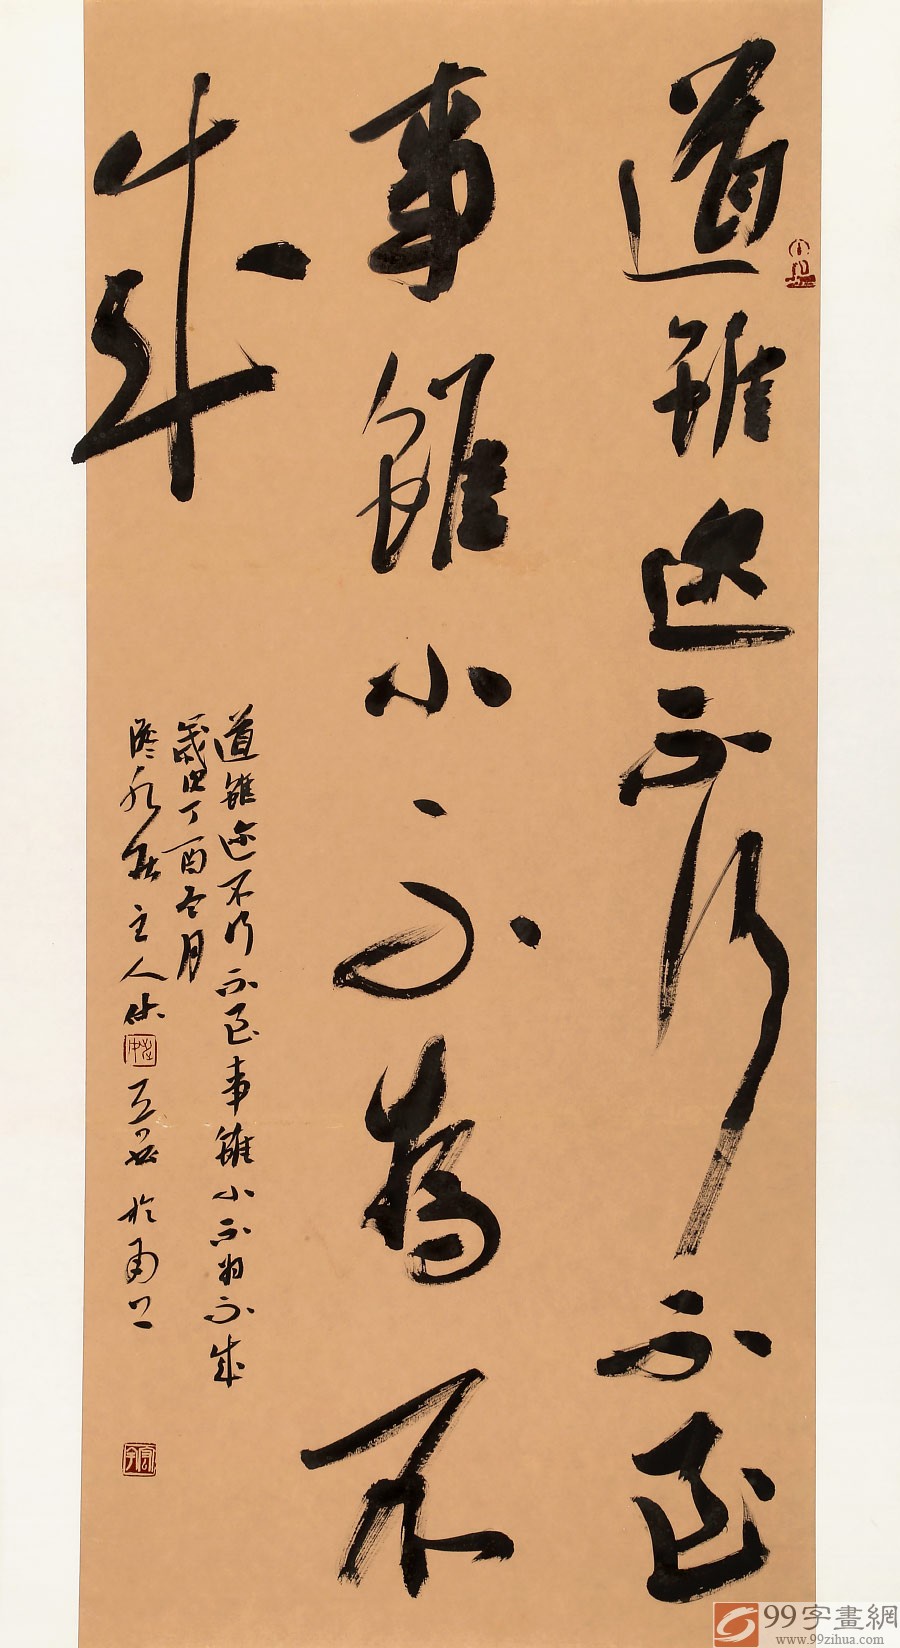 道雖迩不行不至
事雖小不為不
成
道雖迩不行不至事雖小不為不成
歲由丁酉冬月
主人休
於甬上
99字畫網
www.99zihua.com